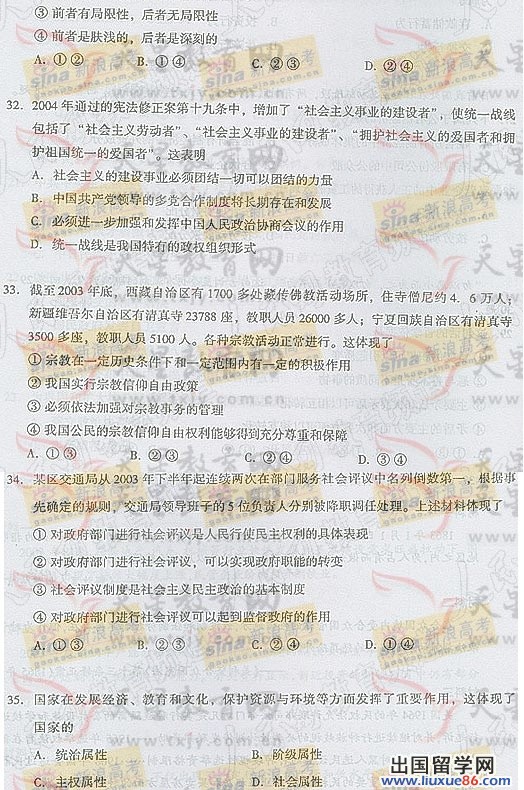 ③ 前者有局限性，后者无局限性
④ 前者是肤浅的，后者是深刻的
A. ①② B. ①④ C. ②③ D. ②④
32. 2004 年通过的宪法修正案第十九条中，增加了“社会主义事业的建设者”，使统一战线
包括了“社会主义劳动者”、“社会主义事业的建设者”、“拥护社会主义的爱国者和拥
护祖国统一的爱国者”。这表明
A. 社会主义的建设事业必须团结一切可以团结的力量
B. 中国共产党领导的多党合作制度将长期存在和发展
C. 必须进一步加强和发挥中国人民政治协商会议的作用
D. 统一战线是我国特有的政权组织形式
33. 截至 2003 年底，西藏自治区有 1700 多处藏传佛教活动场所，住寺僧尼约 4. 6 万人；
新疆维吾尔自治区有清真寺 23788 座，教职人员 26000 多人；宁夏回族自治区有清真寺
3500 多座，教职人员 5100 人。各种宗教活动正常进行。这体现了
① 宗教在一定历史条件下和一定范围内有一定的积极作用
② 我国实行宗教信仰自由政策
③ 必须依法加强对宗教事务的管理
④ 我国公民的宗教信仰自由权利能够得到充分尊重和保障
A. ①③ B. ①② C. ②④ D. ③④
34. 某区交通局从 2003 年下半年起连续两次在部门服务社会评议中名列倒数第一，根据事
先确定的规则，交通局领导班子的 5 位负责人分别被降职调任处理。上述材料体现了
① 对政府部门进行社会评议是人民行使民主权利的具体表现
② 对政府部门进行社会评议，可以实现政府职能的转变
③ 社会评议制度是社会主义民主政治的基本制度
④ 对政府部门进行社会评议可以起到监督政府的作用
A. ①③ B. ②④ C. ②③ D. ①④
35. 国家在发展经济、教育和文化，保护资源与环境等方面发挥了重要作用，这体现了
国家的
A. 统治属性 B. 阶级属性
C. 主权属性 D. 社会属性
出国留学网
www.liuxue86.com